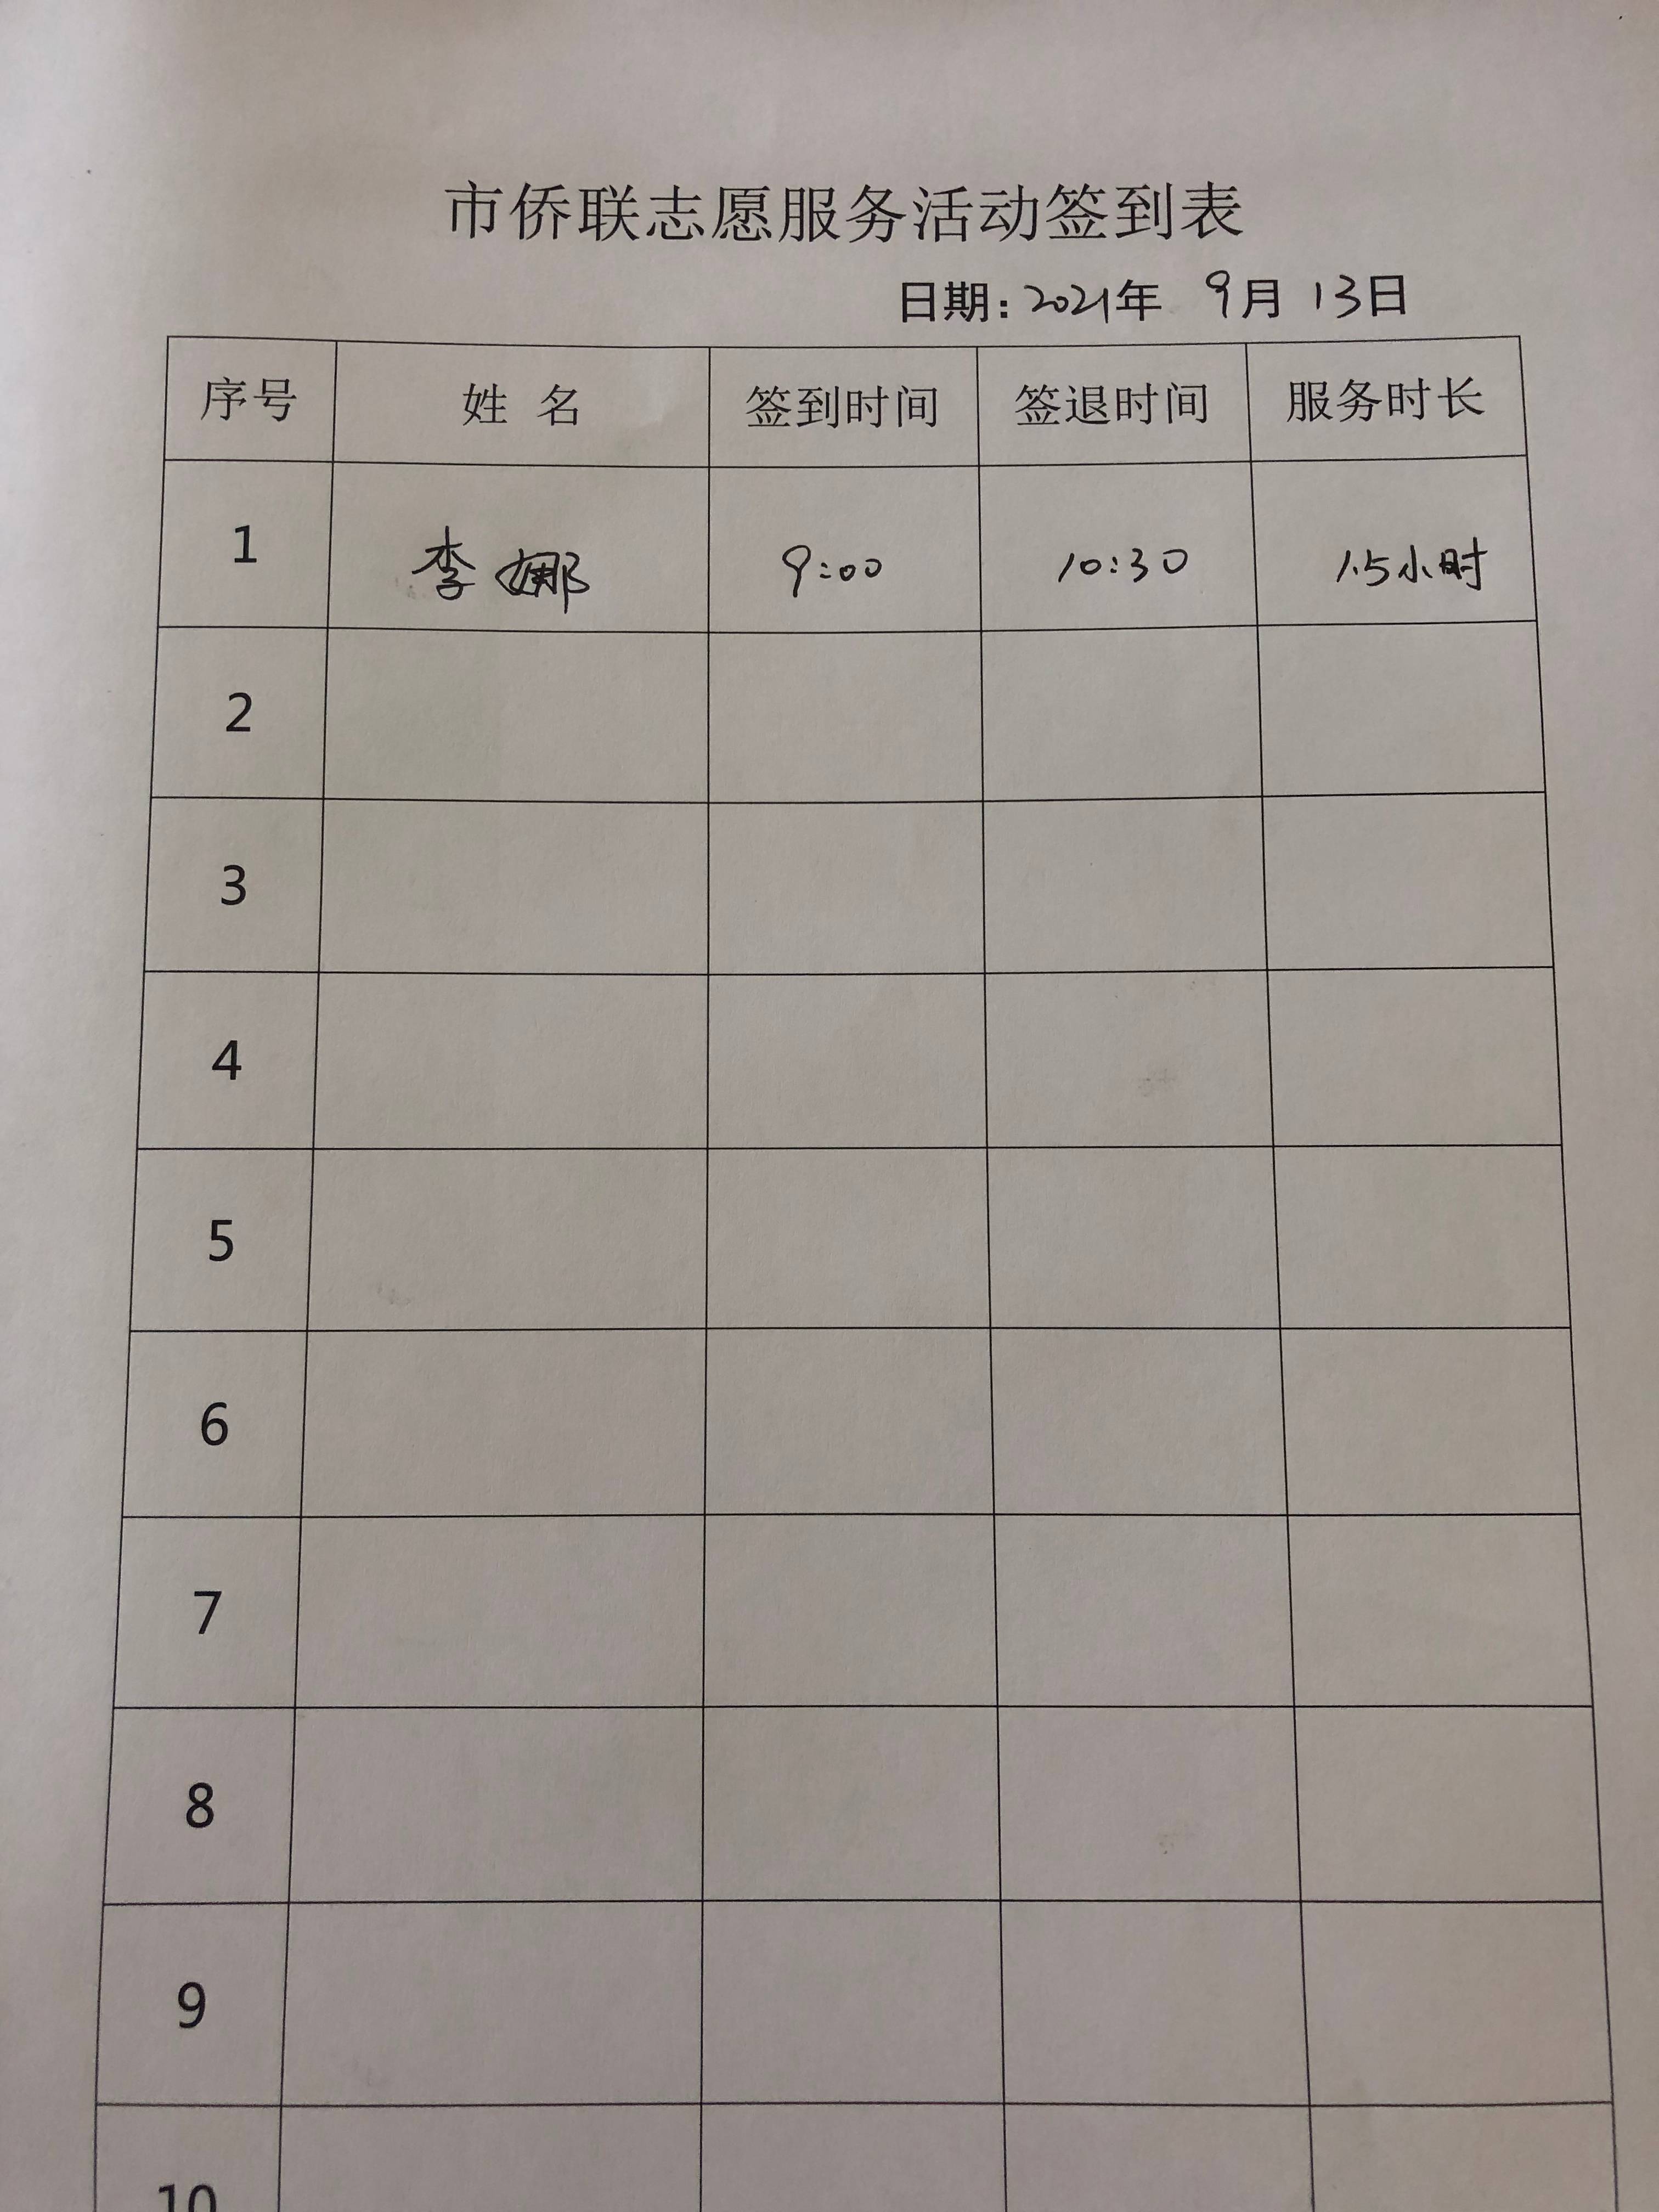 市侨联志愿服务活动签到表
日期：2021年 9月 13日
序号 姓 名 签到时间 签退时间 服务时长
1 李娜 9:00 10:30 1.5小时
2
3
4
5
6
7
8
9
10